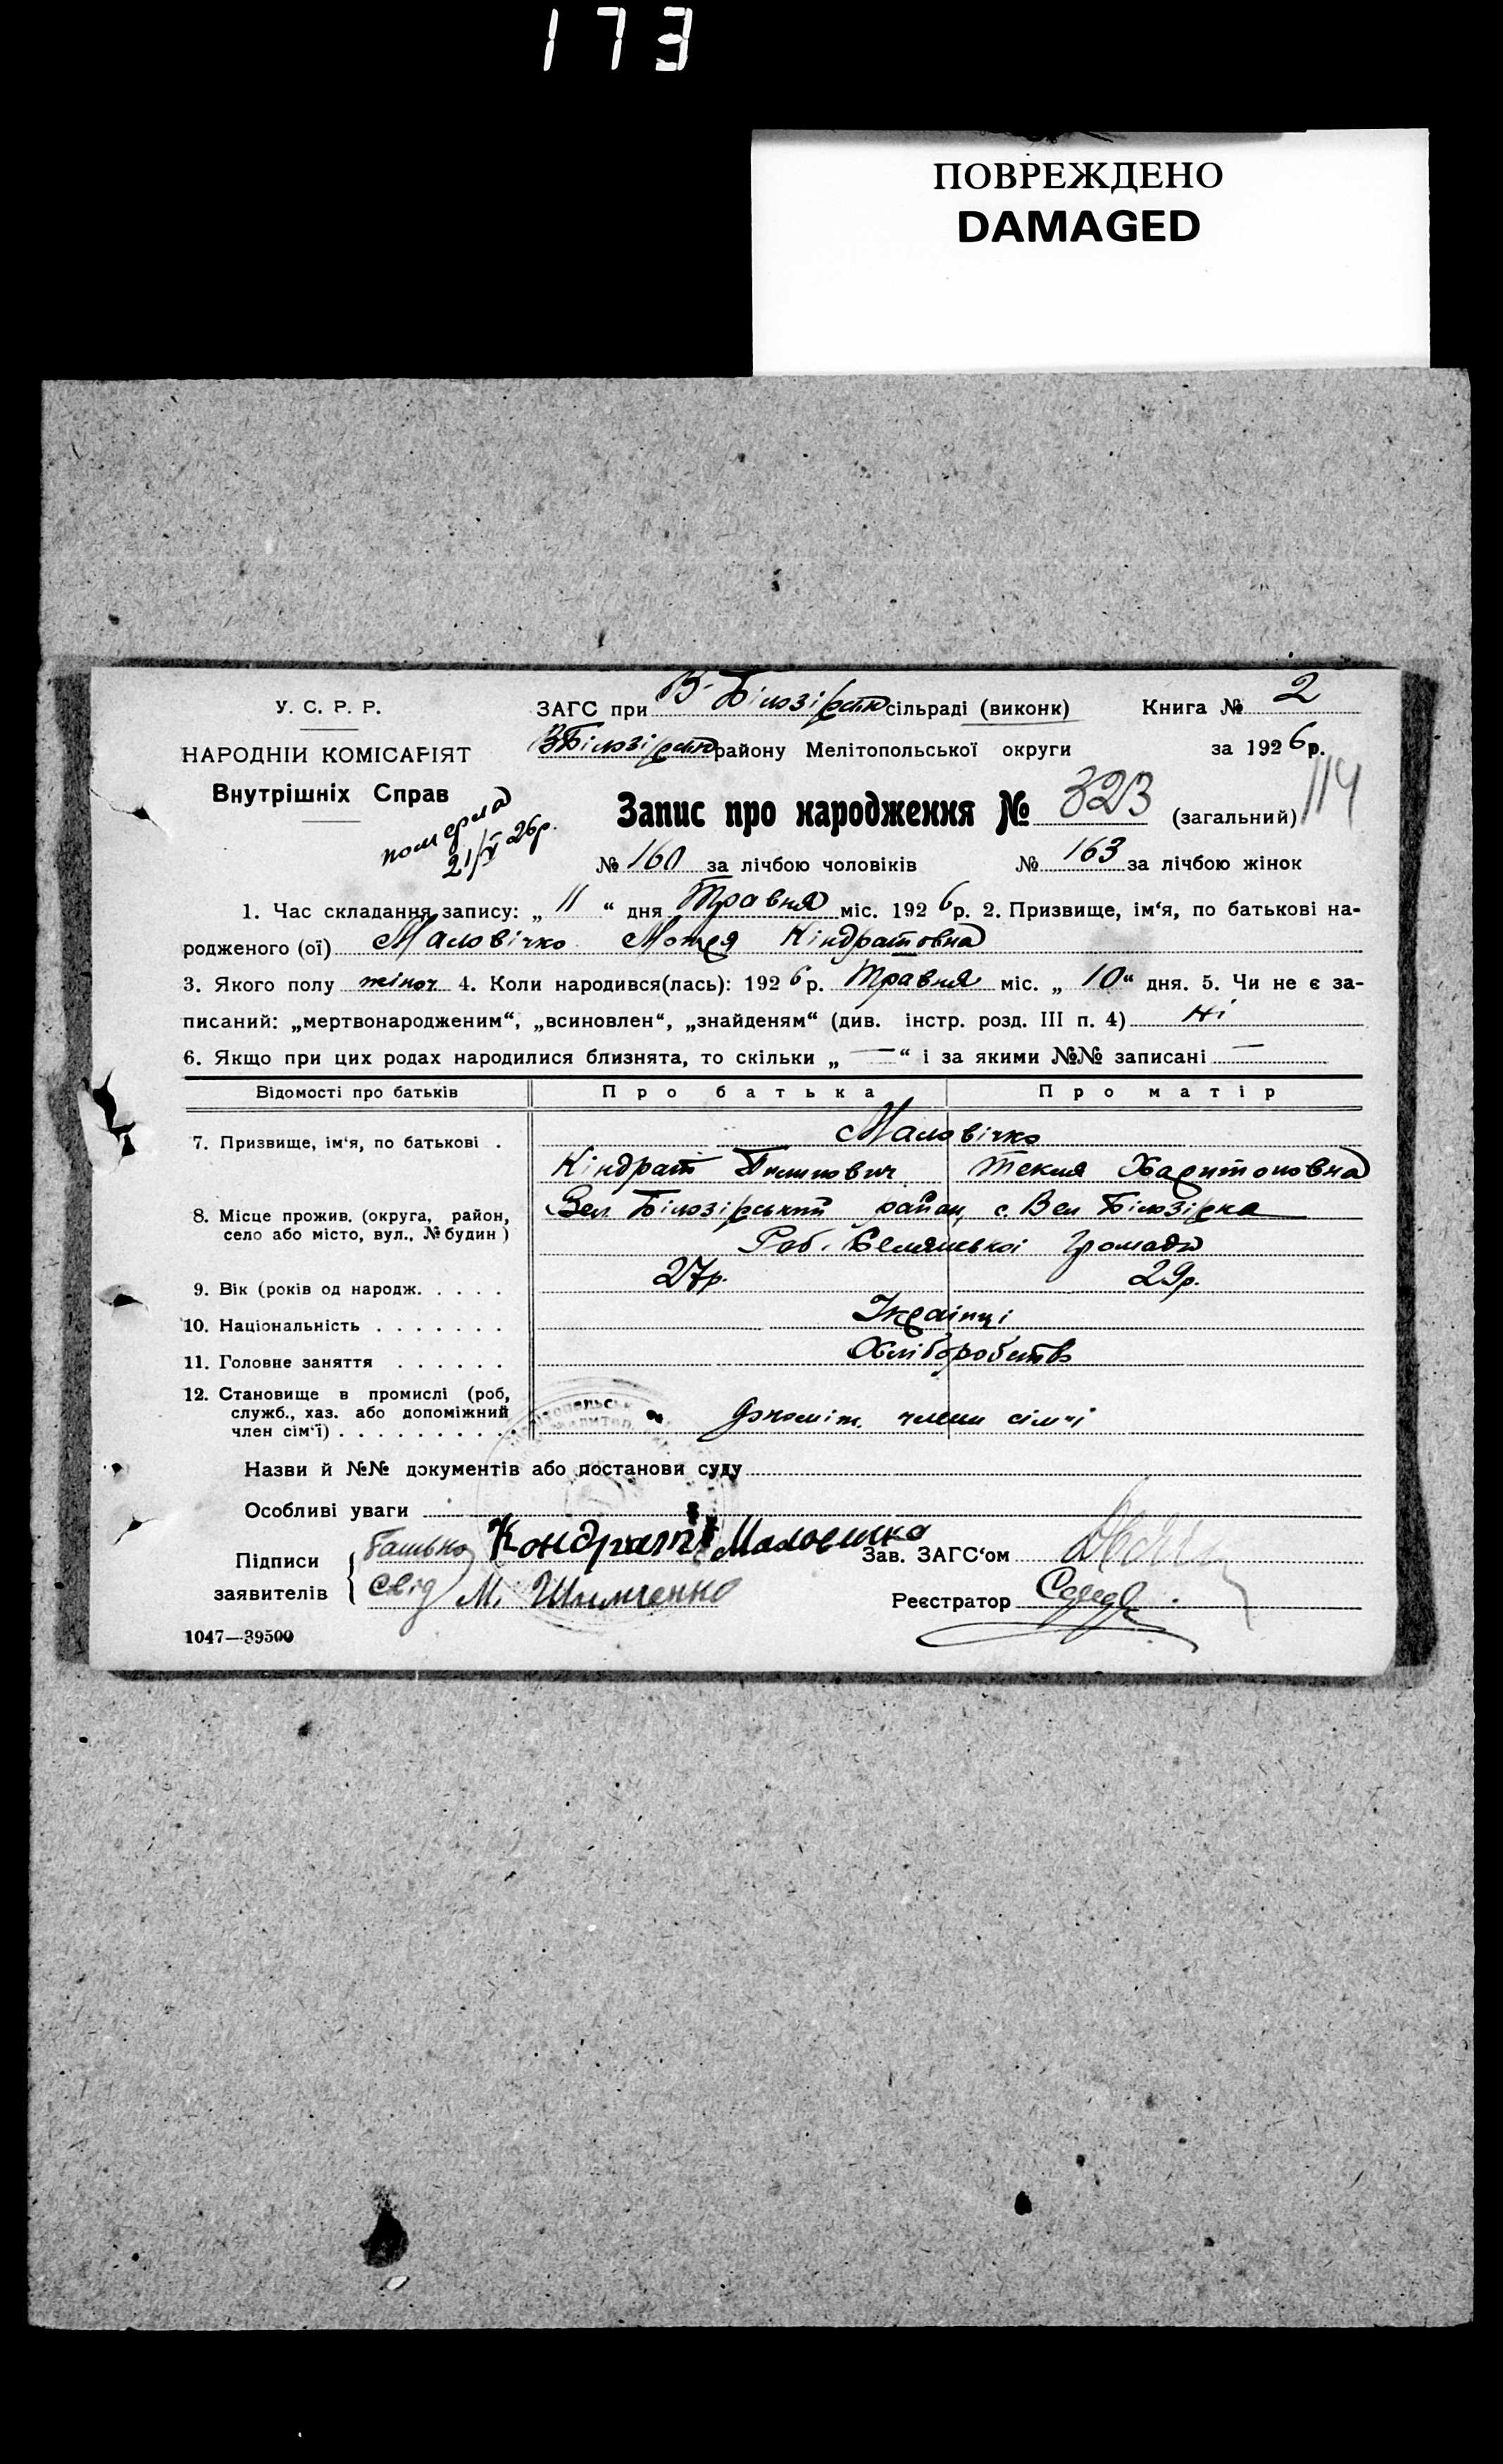 173
ПОВРЕЖДЕНО
DAMAGED
У. С. Р. Р.
НАРОДНІИ КОМІСАРІЯТ
Внутрішніх Справ
померла
21/V 26р.
ЗАГС при В-Білозірск сільраді (виконк)
ВБілозірск району Мелітопольської округи
Книга № 2
за 1926 р.
Запис про народження № 323 (загальний)
114
№ 160 за лічбою чоловіків № 163 за лічбою жінок
1. Час складання запису: „ 11 “ дня Травня міс. 1926 р. 2. Призвище, ім‘я, по батькові на-
родженого (ої) Маловічко Мотря Кіндратовна
3. Якого полу жіноч 4. Коли народився(лась): 1926 р. Травня міс. „ 10 “ дня. 5. Чи не є за-
писаний: „мертвонародженим“, „всиновлен“, „знайденям“ (див. інстр. розд. III п. 4) Ні
6. Якщо при цих родах народилися близнята, то скільки „ — “ і за якими №№ записані —
Відомості про батьків Про батька Про матір
7. Призвище, ім‘я, по батькові . Маловічко
Кіндрат Текля Харитоновна
8. Місце прожив. (округа, район, Вел Білозірський район, с. Вел Білозірка
село або місто, вул., № будин ) громади
9. Вік (років од народж. . . . . 27р. 29р.
10. Національність . . . . . . . Украінці
11. Головне заняття . . . . . . Хліборобство
12. Становище в промислі (роб,
служб., хаз. або допоміжний
член сім‘ї) . . . . . . . . . . допоміж. члени сім‘і
Назви й №№ документів або постанови суду
Особливі уваги
Підписи
заявителів
батько Кондрат Маловичко
свід М. Шимченко
Зав. ЗАГС‘ом
Реєстратор
1047—39500